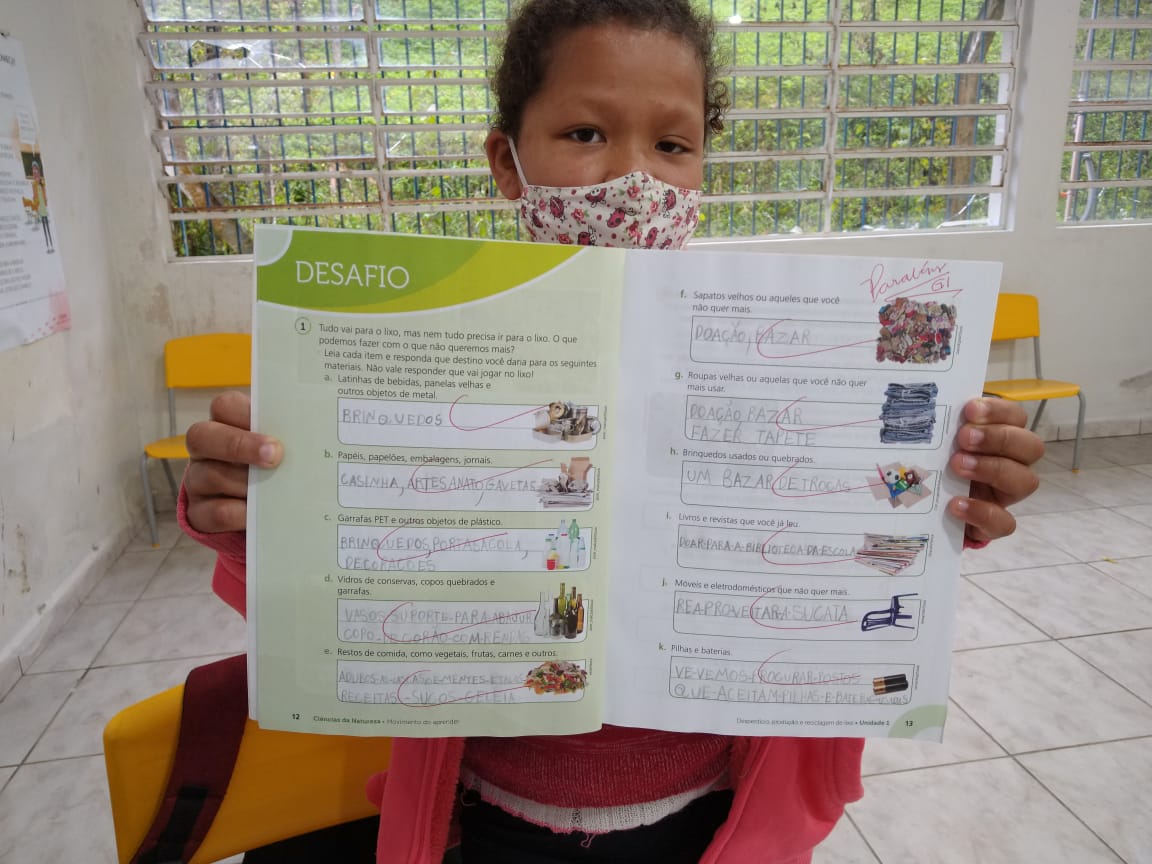 DESAFIO
1 Tudo vai para o lixo, mas nem tudo precisa ir para o lixo. O que
podemos fazer com o que não queremos mais?
Leia cada item e responda que destino você daria para os seguintes
materiais. Não vale responder que vai jogar no lixo!
a. Latinhas de bebidas, panelas velhas e
outros objetos de metal.
BRINQUEDOS
b. Papéis, papelões, embalagens, jornais.
CASINHA, ARTESANATO, GAVETAS
c. Garrafas PET e outros objetos de plástico.
BRINQUEDOS, PORTA SACOLA,
DECORAÇÕES
d. Vidros de conservas, copos quebrados e
garrafas.
VASOS-SUPORTE-PARA-ABAJUR
COPO-DECORÃO-COM-RENDAS
e. Restos de comida, como vegetais, frutas, carnes e outros.
RECEITAS-SUCOS-GELEIA
12 Ciências da Natureza • Movimento do aprender
Parabéns
G1
f. Sapatos velhos ou aqueles que você
não quer mais.
DOAÇÃO, BAZAR
g. Roupas velhas ou aquelas que você não quer
mais usar.
DOAÇÃO BAZAR
FAZER TAPETE
h. Brinquedos usados ou quebrados.
UM BAZAR DE TROCAS
i. Livros e revistas que você já leu.
DOAR-PARA-A-BIBLIOTECA-DA-ESCOLA
j. Móveis e eletrodomésticos que não quer mais.
REAPROVEITARA-SUCATA
k. Pilhas e baterias.
VE-VEMOS-PROCURAR-POSTOS
QUE-ACEITAM-PILHAS-E-BATERIAS
Desperdício, produção e reciclagem do lixo • Unidade 1 13